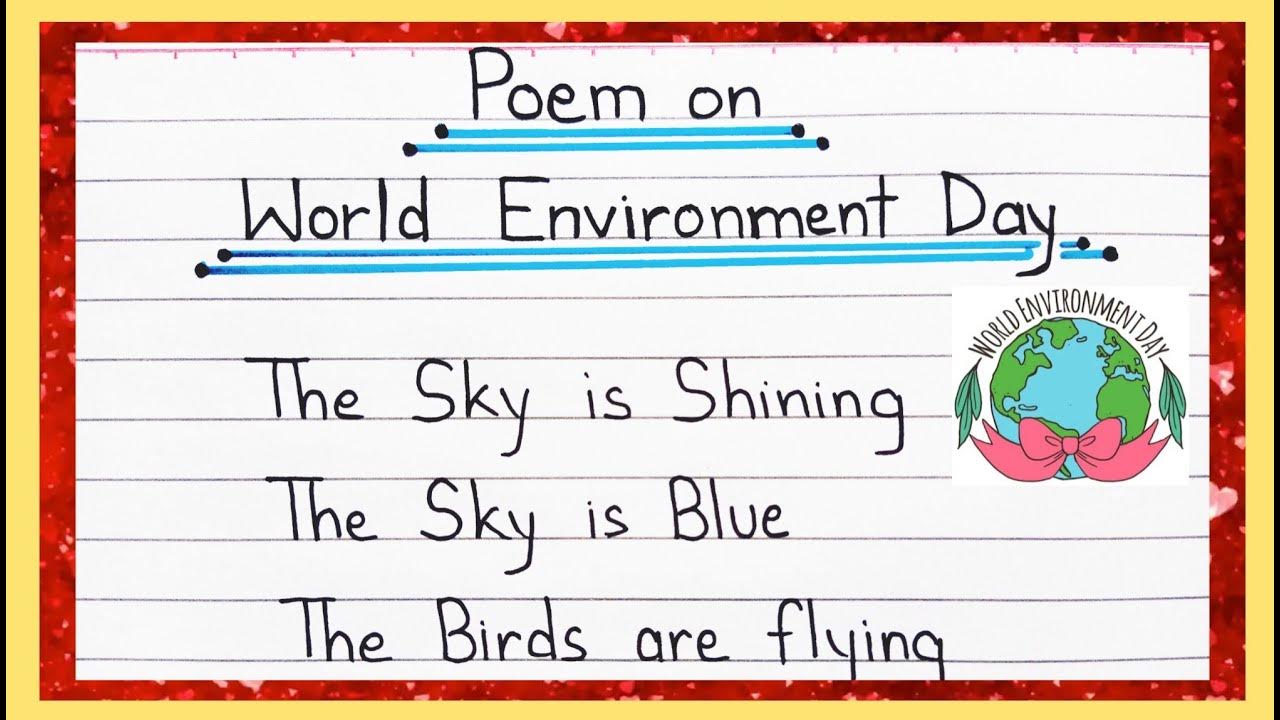 Poem on
World Environment Day
WORLD ENVIRONMENT DAY
The Sky is Shining
The Sky is Blue
The Birds are flying